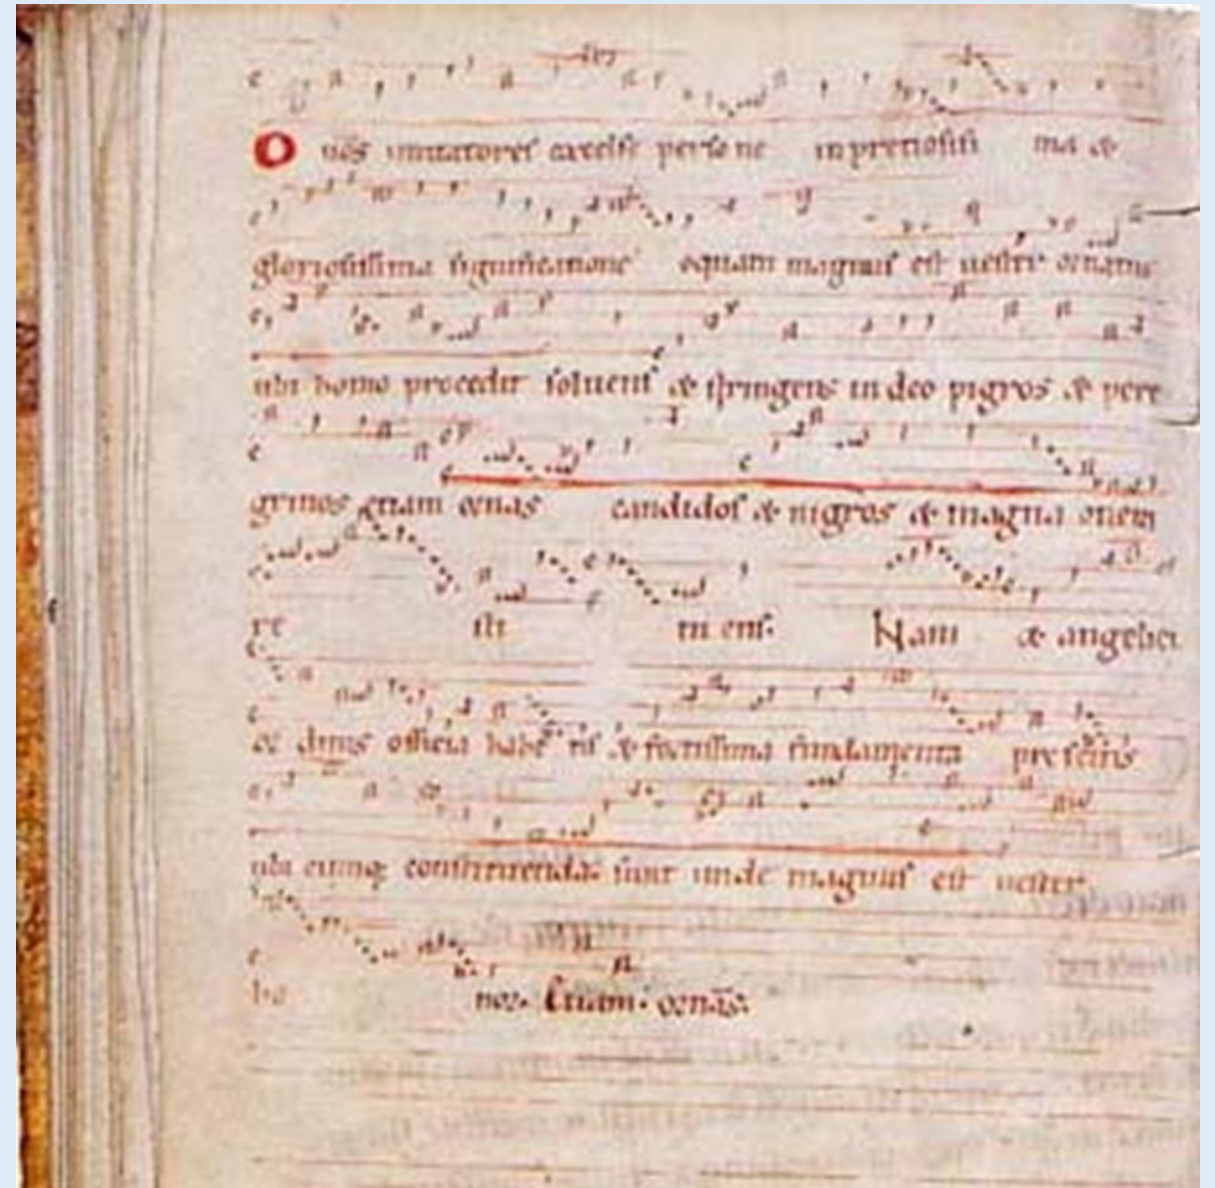 O uos imitatores excelse persone in pretiosissima &
gloriosissima significatione o quam magnus est uester ornatus
ubi homo procedit soluens & stringens in deo pigros & pere
grinos etiam ornas candidos & nigros & magna onera
re mit tens. Nam & angelici
ordinis officia habe tis & fortissima fundamenta prescitis
ubi cumq; constituenda sunt unde magnus est uester
ho nor. Etiam. ornas.